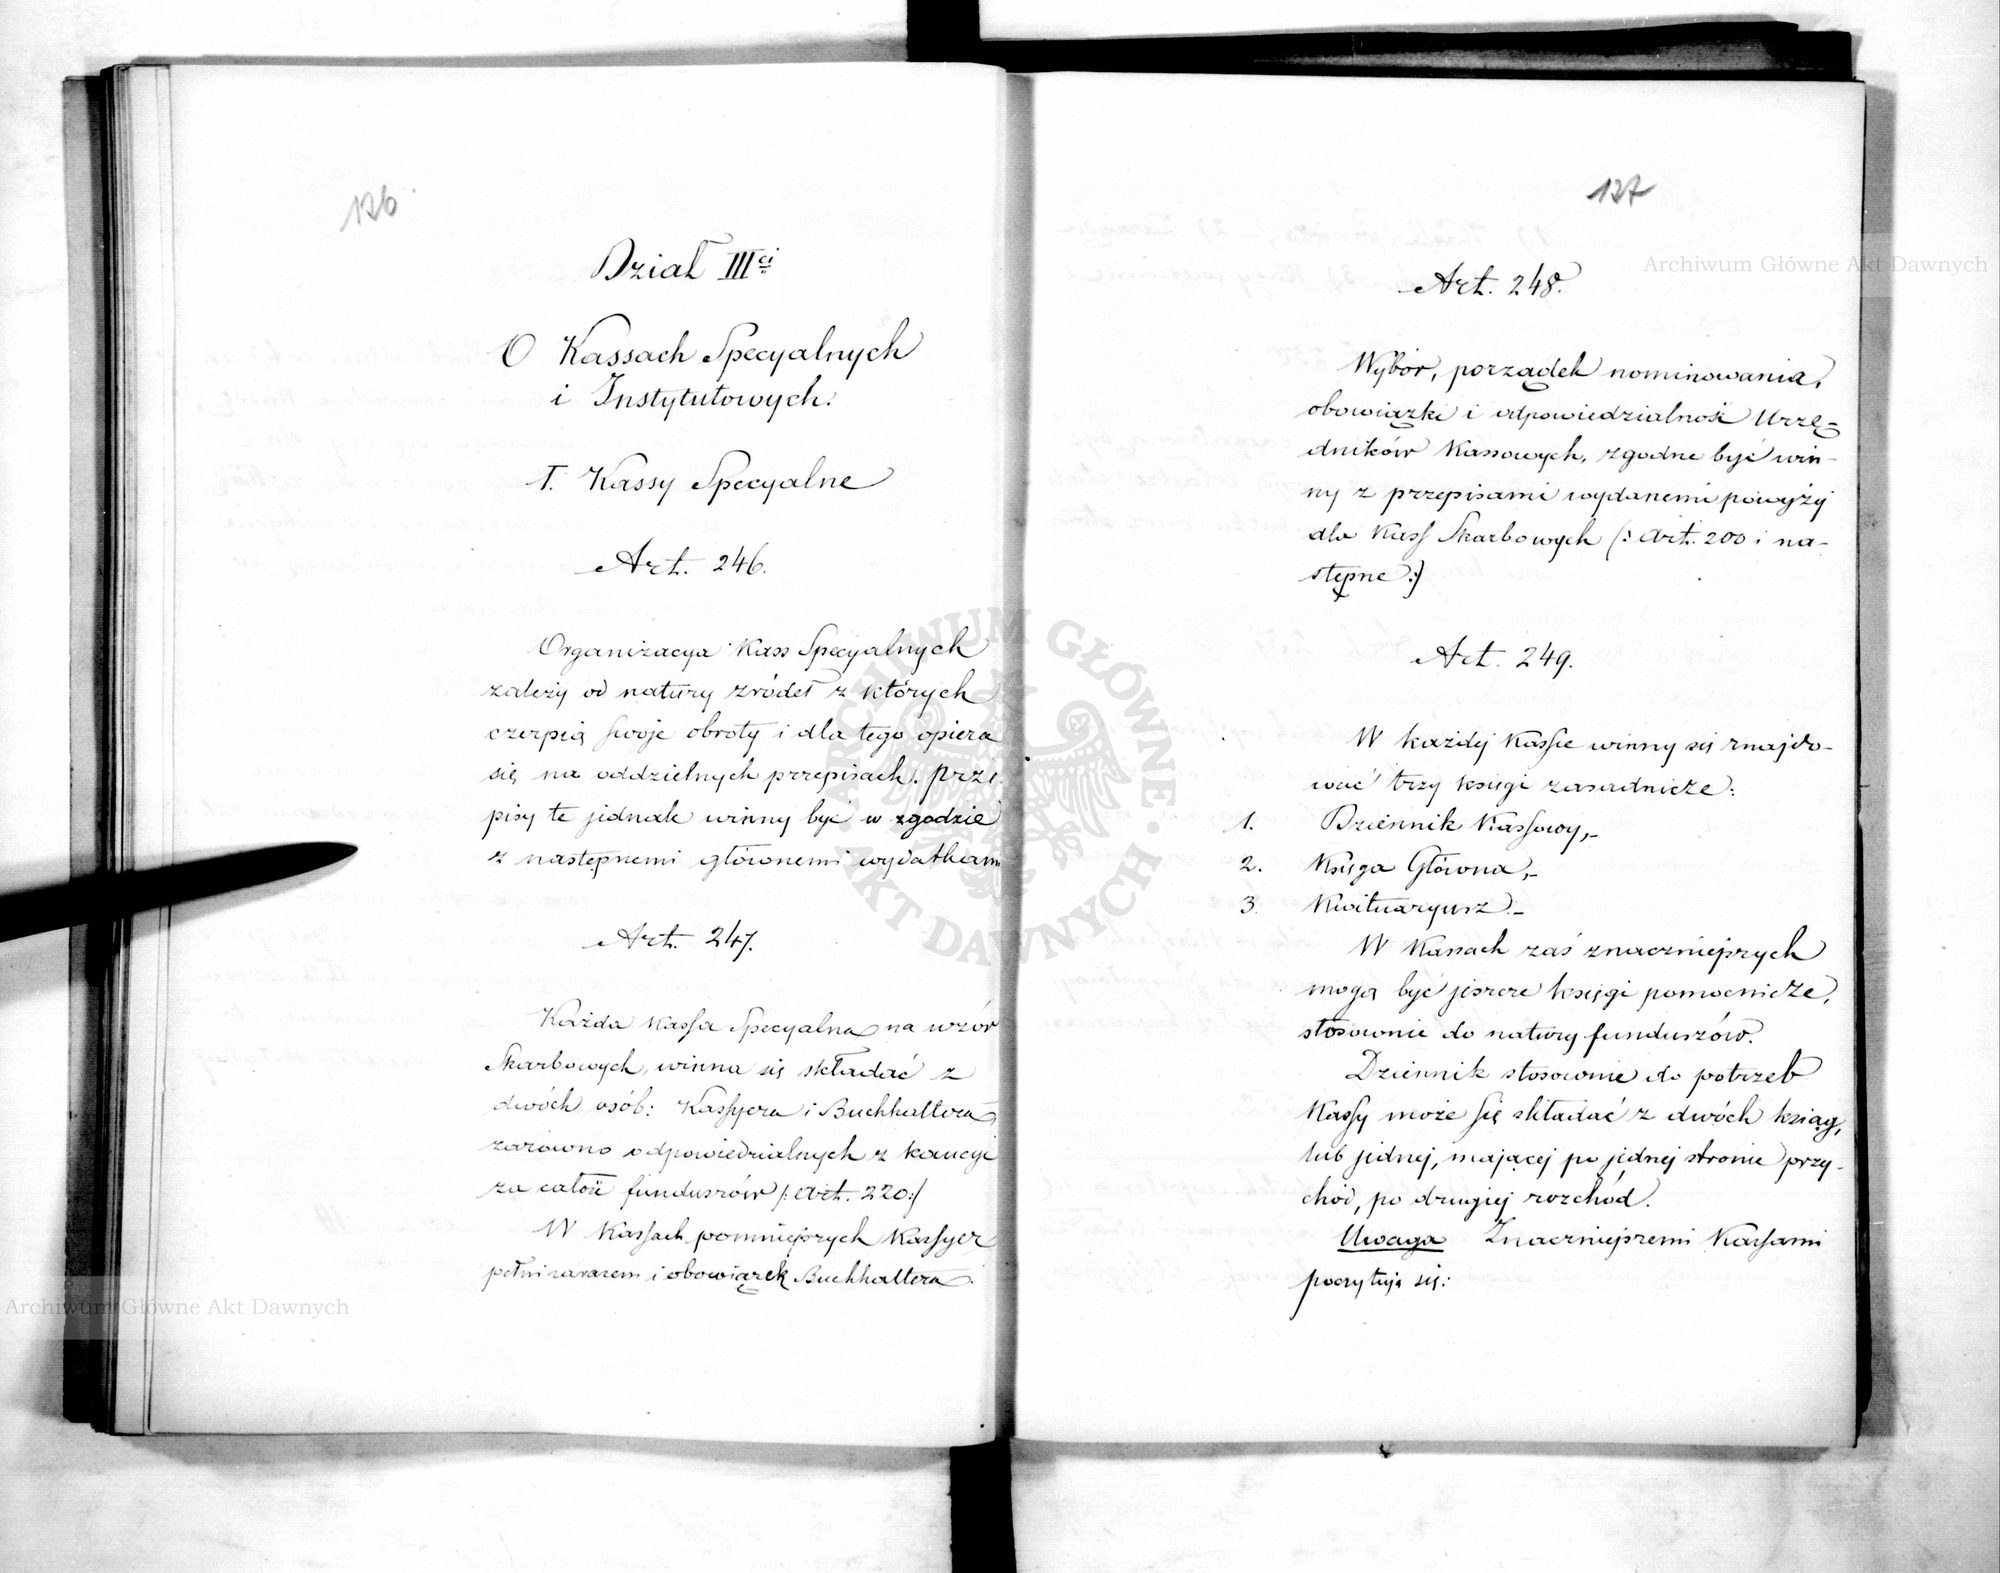 126
Dział III ci
O Kassach Specyalnych
i Instytutowych.
I. Kassy Specyalne
Art. 246.
Organizacya Kass Specyalnych
zależy od natury źródeł z których
czerpią swoje obroty i dla tego opiera
się na oddzielnych przepisach. Prze-
pisy te jednak winny być w zgodzie
z następnemi głównemi wydatkami
Art. 247.
Każda Kassa Specyalna na wzór
Skarbowych, winna się składać z
dwóch osób: Kassyera i Buchhaltera,
zarówno odpowiedzialnych z kaucyi
za całość funduszów (: Art. 220:)
W Kassach pomniejszych Kassyer
pełni zarazem i obowiązek Buchhaltera.
127
Art. 248.
Wybór, porządek nominowania,
obowiązki i odpowiedzialność Urzę-
dników Kassowych, zgodne być win-
ny z przepisami wydanemi powyżéj
dla Kass Skarbowych (: Art. 200 i na-
stępne :)
Art. 249.
W każdéj Kassie winny się znajdo-
wać trzy księgi zasadnicze:
1. Dziennik Kassowy,-
2. Księga Główna,-
3. Kwitaryusz.-
W Kassach zaś znaczniejszych
mogą być jeszcze księgi pomocnicze,
stosownie do natury funduszów.
Dziennik stosownie do potrzeb
Kassy może się składać z dwóch ksiąg,
lub jednej, mającej po jednej stronie przy-
chód, po drugiej rozchód.
Uwaga Znaczniejszemi Kassami
poczytują się:
Archiwum Główne Akt Dawnych
Archiwum Główne Akt Dawnych
ARCHIWUM GŁÓWNE AKT DAWNYCH